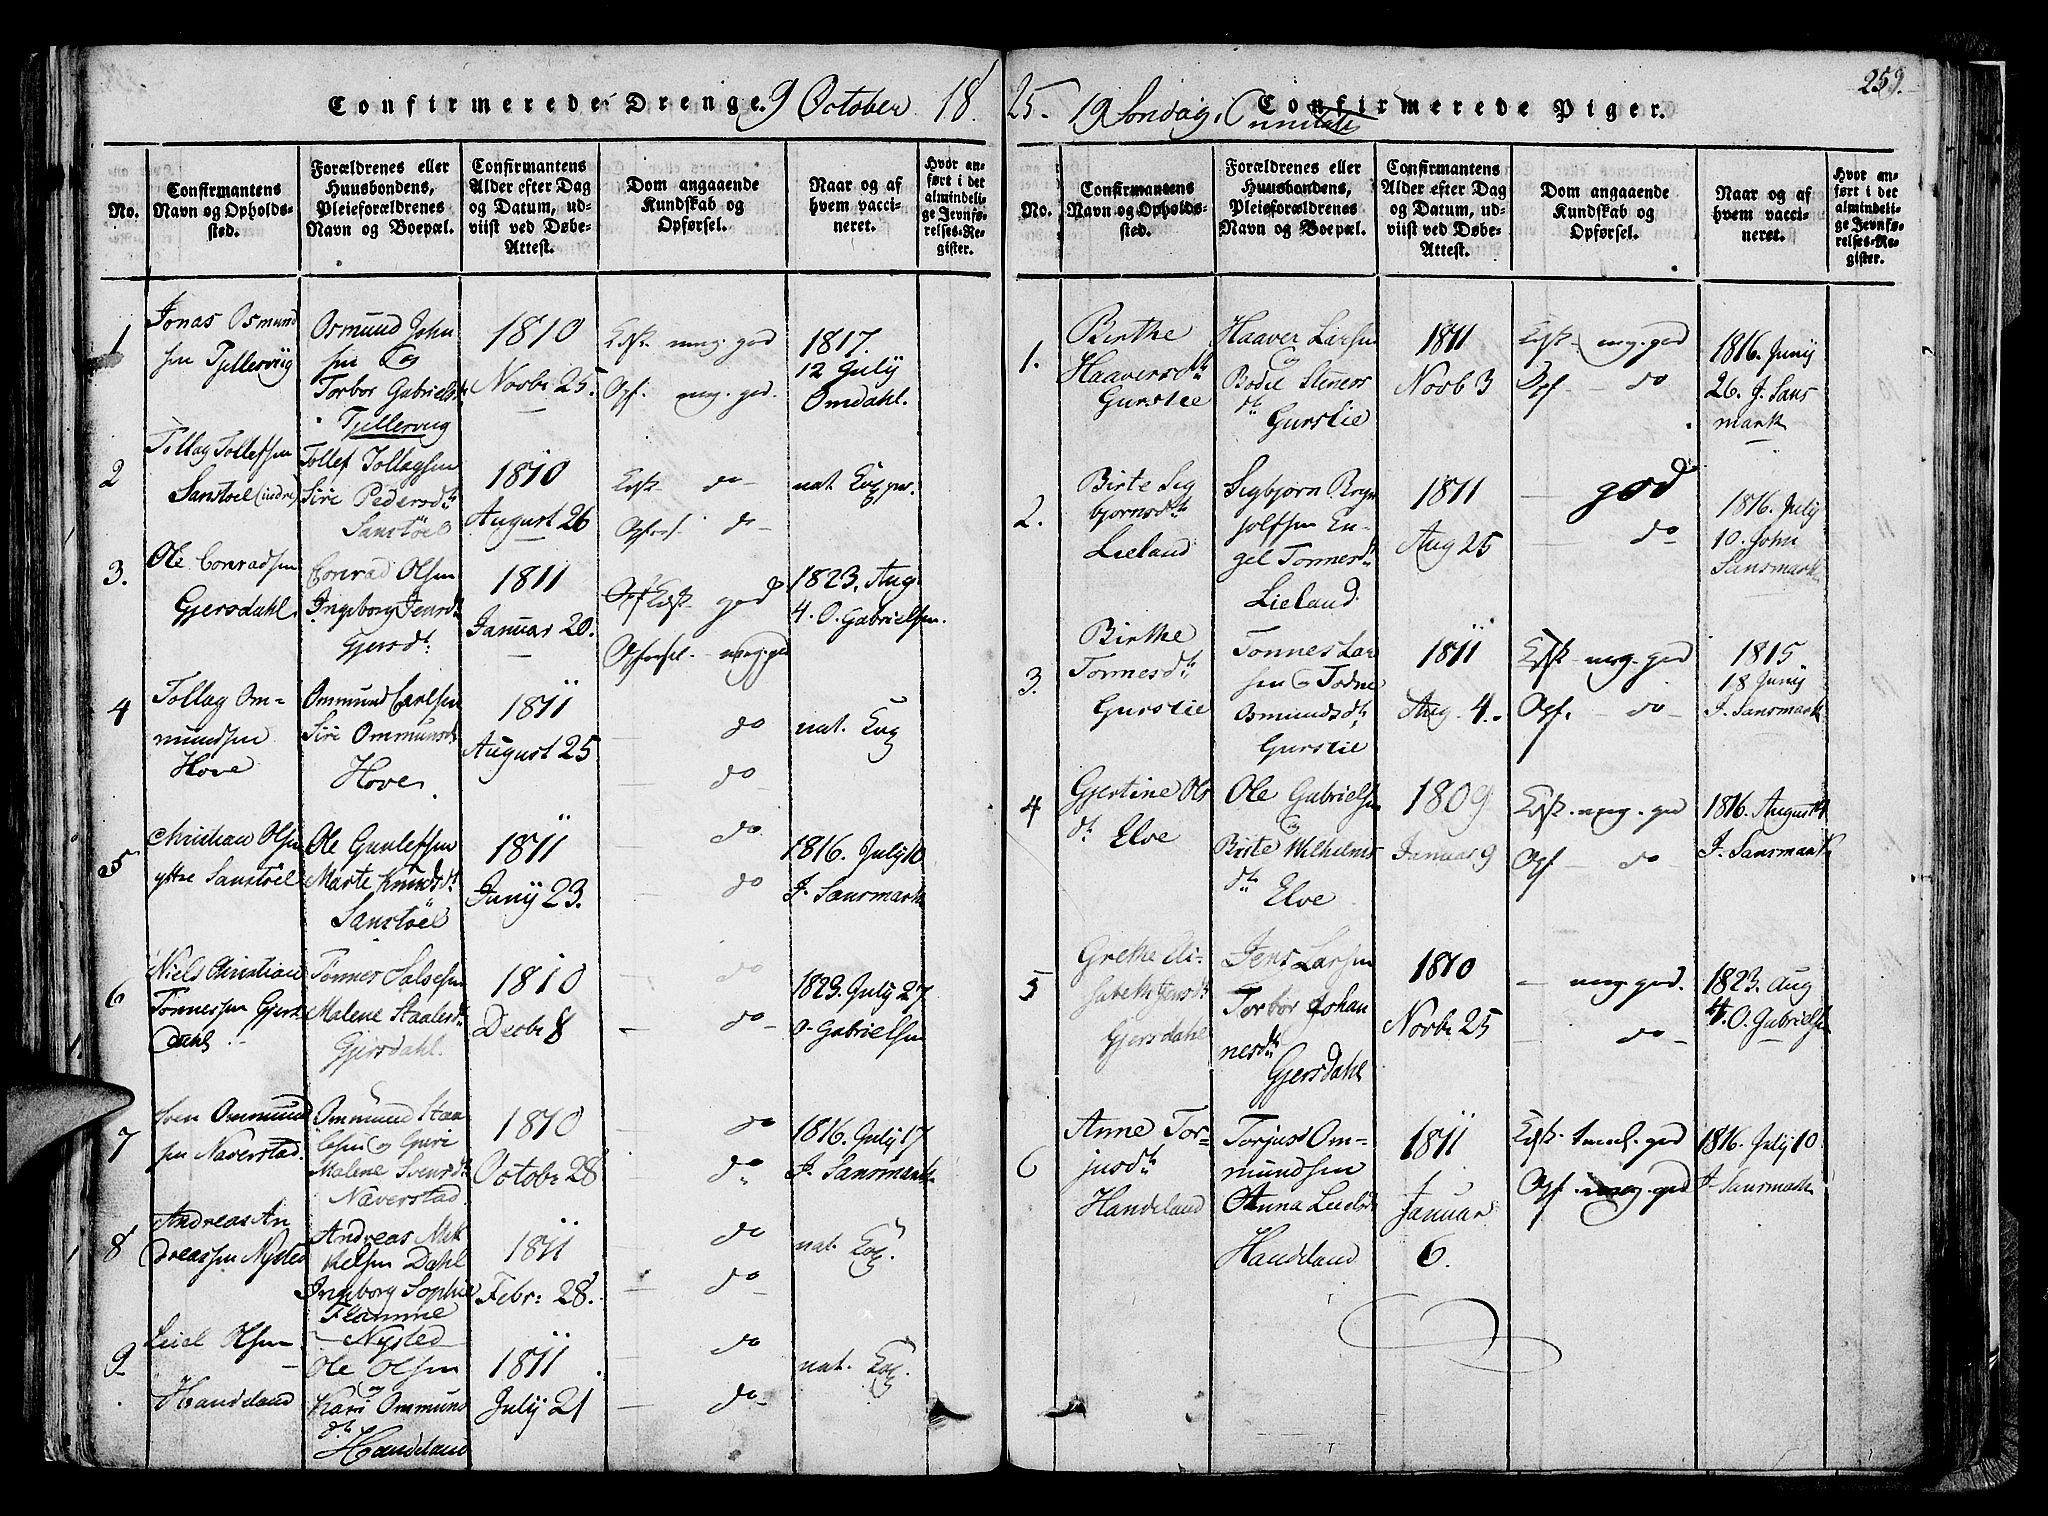 Confirmerede Drenge. 9 October 18
No.
Confirmantens Navn og Opholds-sted.
Forældrenes eller Huusbondens, Pleieforældrenes Navn og Boepæl.
Confirmantens Alder efter Dag og Datum, ud-viist ved Døbe-Attest.
Dom angaaende Kundskab og Opførsel.
Naar og af hvem vacci-neret.
Hvor an-ført i det almindeli-ge Jevnfø-relses-Re-gister.
1
Jonas Osmund
sen Tjellerviig
Osmund John
sen og
Torbor Gabrielsd
Tjellervug
1810
Novbr 25.
Kdsk meg. god
Opf. meg. god.
1817.
12 July
Omdahl.
2
Tollag Tollefsen
Sanstoel (indre)
Tollef Tollagsen
Siri Pedersdtr
Sanstöel
1810
August 26
Kdsk do
Opførs. do
nat. Kopper.
3.
Ole Conradsen
Gjersdahl.
Conrad Olsen
Ingeborg Jensd
Gjersd:
1811
Januar 20.
Kdsk god
Opførsel. meg. god
1823. Aug
4. O. Gabrielsen.
4
Tollag Om-
mundsen
Hove
Ommund Carlsen
Siri Ommunsd
Hove.
1811
August 25
do
do
nat. Kop
5
Christian Olsen
yttre Sanstöel
Ole Gunlefsen
Marte Knudsdt
Sanstöel
1811
Junij 23.
do
do
1816. July 10
J. Sansmark
6
Niels Christian
Tönnessen Gjers
dahl
Tönnes Salvesen
Malene Staalesd
Gjersdahl.
1810
Decbr 8
do
do
1823. July 27
O. Gabrielsen
7
Sven Ommund
sen Naverstad.
Ommund Staa
lesen og Guri
Malene Svensdt
Naverstad.
1810
October 28
do
do
1816. July 17
J. Sansmark
8
Andreas An
dreassen Nysted
Andreas Mik
kelsen Dahl
Ingeborg Sophie
Flamme
Nysted
1811
Febr: 28.
do
do
nat. Kop.
9
Leiel Olsen
Handeland
Ole Olsen
og
Kari Ommund
dt
Handeland
1811
July 21
do
do
nat. Kop.
25. 19 Søndag. Trinitatis Confirmerede Piger.
259.
No.
Confirmantens Navn og Opholds-sted.
Forældrenes eller Huusbondens, Pleieforældrenes Navn og Boepæl.
Confirmantens Alder efter Dag og Datum, ud-viist ved Døbe-Attest.
Dom angaaende Kundskab og Opførsel.
Naar og af hvem vacci-neret.
Hvor an-ført i det almindeli-ge Jevnfø-relses-Re-gister.
1.
Birthe
Haaversdtr
Gurstie
Haaver Larsen
og
Bodil Steners
dtr
Gurstie
1811
Novb 3
Kdsk. meg. god
Opf - do
1816. Junij
26. J. Sans
mark
2.
Birte Sig
bjornsdtr
Lieland
Sigbjorn Bryn
jolfsen En
gel Tonnesdt
Lieland
1811
Aug 25
god
do
1816. July
10. John
Sansmark
3.
Birthe
Tonnesdt
Gurstie
Tonnes Lar
sen og Todne
Osmundsdt
Gurstie
1811
Aug. 4.
Kdsk - meg. god
Opf. - do -
1815
18 Junij
J. Sansmark
4
Gjertine Ols
dtr Elve
Ole Gabrielsen
og
Birte Wilhelms
dtr
Elve
1809
Januar 9
Kdsk. meg. god
Opf - do
1816. August 4
J. Sansmark
5
Grethe Eli
sabeth Jensdt
Gjersdahl
Jens Larsen
Torbor Johan
nesdtr
Gjersdahl
1810
Novbr 25
- meg. god.
do
1823. Aug
4. O. Gabrielsen
6
Anne Tor-
jusdtr
Handeland
Torjus Om-
mundsen
Anna Leelsd
Handeland
1811
Januar
6.
Kdsk. temel. god
Opf. meg. god
1816. July 10
J. Sansmark